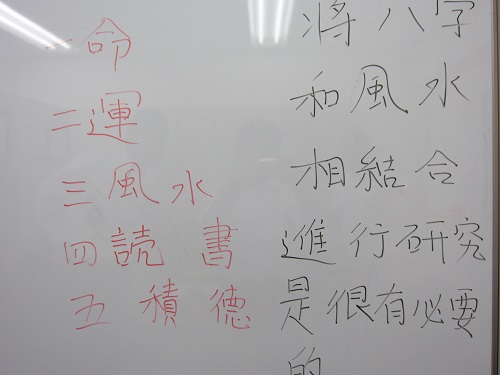 一命
二運
三風水
四読書
五積德
將八字
和風水
相結合
進行研究
是很有必要
的